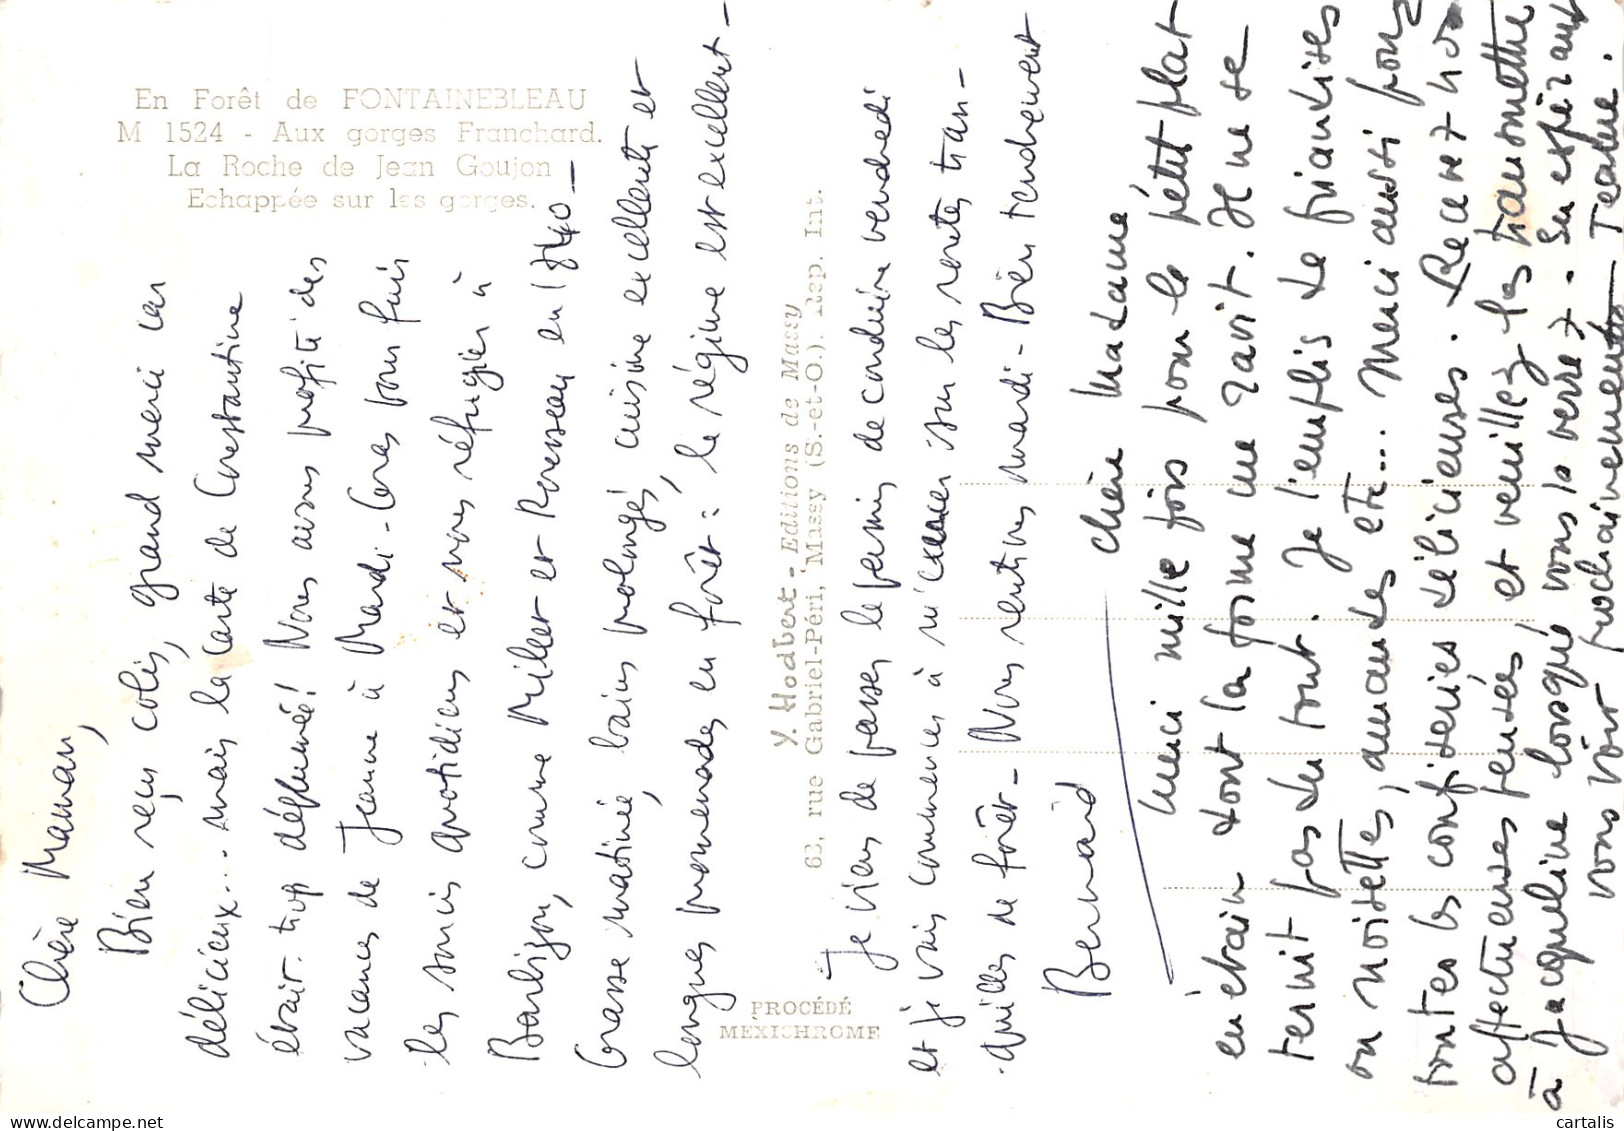 En Forêt de FONTAINEBLEAU
M 1524 - Aux gorges Franchard.
La Roche de Jean Goujon
Echappée sur les gorges.
Y. Hodbert - Editions de Massy
63, rue Gabriel-Péri, Massy (S.-et-O.). Rep. Int.
PROCÉDÉ
MEXICHROME
Chère Maman,
Bien reçu colis, grand merci
délicieux... mais la carte de Constantine
était trop déplumée! Nous avons profité des
vacances de Jeanne à Mardi-Gras pour fuir
les soucis quotidiens et nous réfugier à
Barbizon, comme Millet et Rousseau en 1840 -
Grasse matinée, bains prolongés, cuisine excellente et
longues promenades en forêt: le régime est excellent -
Je viens de passer le permis de conduire vendredi
et je vais commencer à m'exercer sur les routes tran-
quilles de forêt - Nous rentrons mardi - Bien tendrement
Bernard
Chère Madame
Merci mille fois pour le petit plat
en étain dont la forme me ravit. Il ne se
ternit pas du tout. Je l'emplis de friandises
ou noisettes, amandes etc... Merci aussi pour
toutes les confiseries délicieuses. Recevez nos
affectueuses pensées, et veuillez les transmettre
à Jacqueline lorsque vous la verrez. En espérant
vous voir prochainement Jeanne.